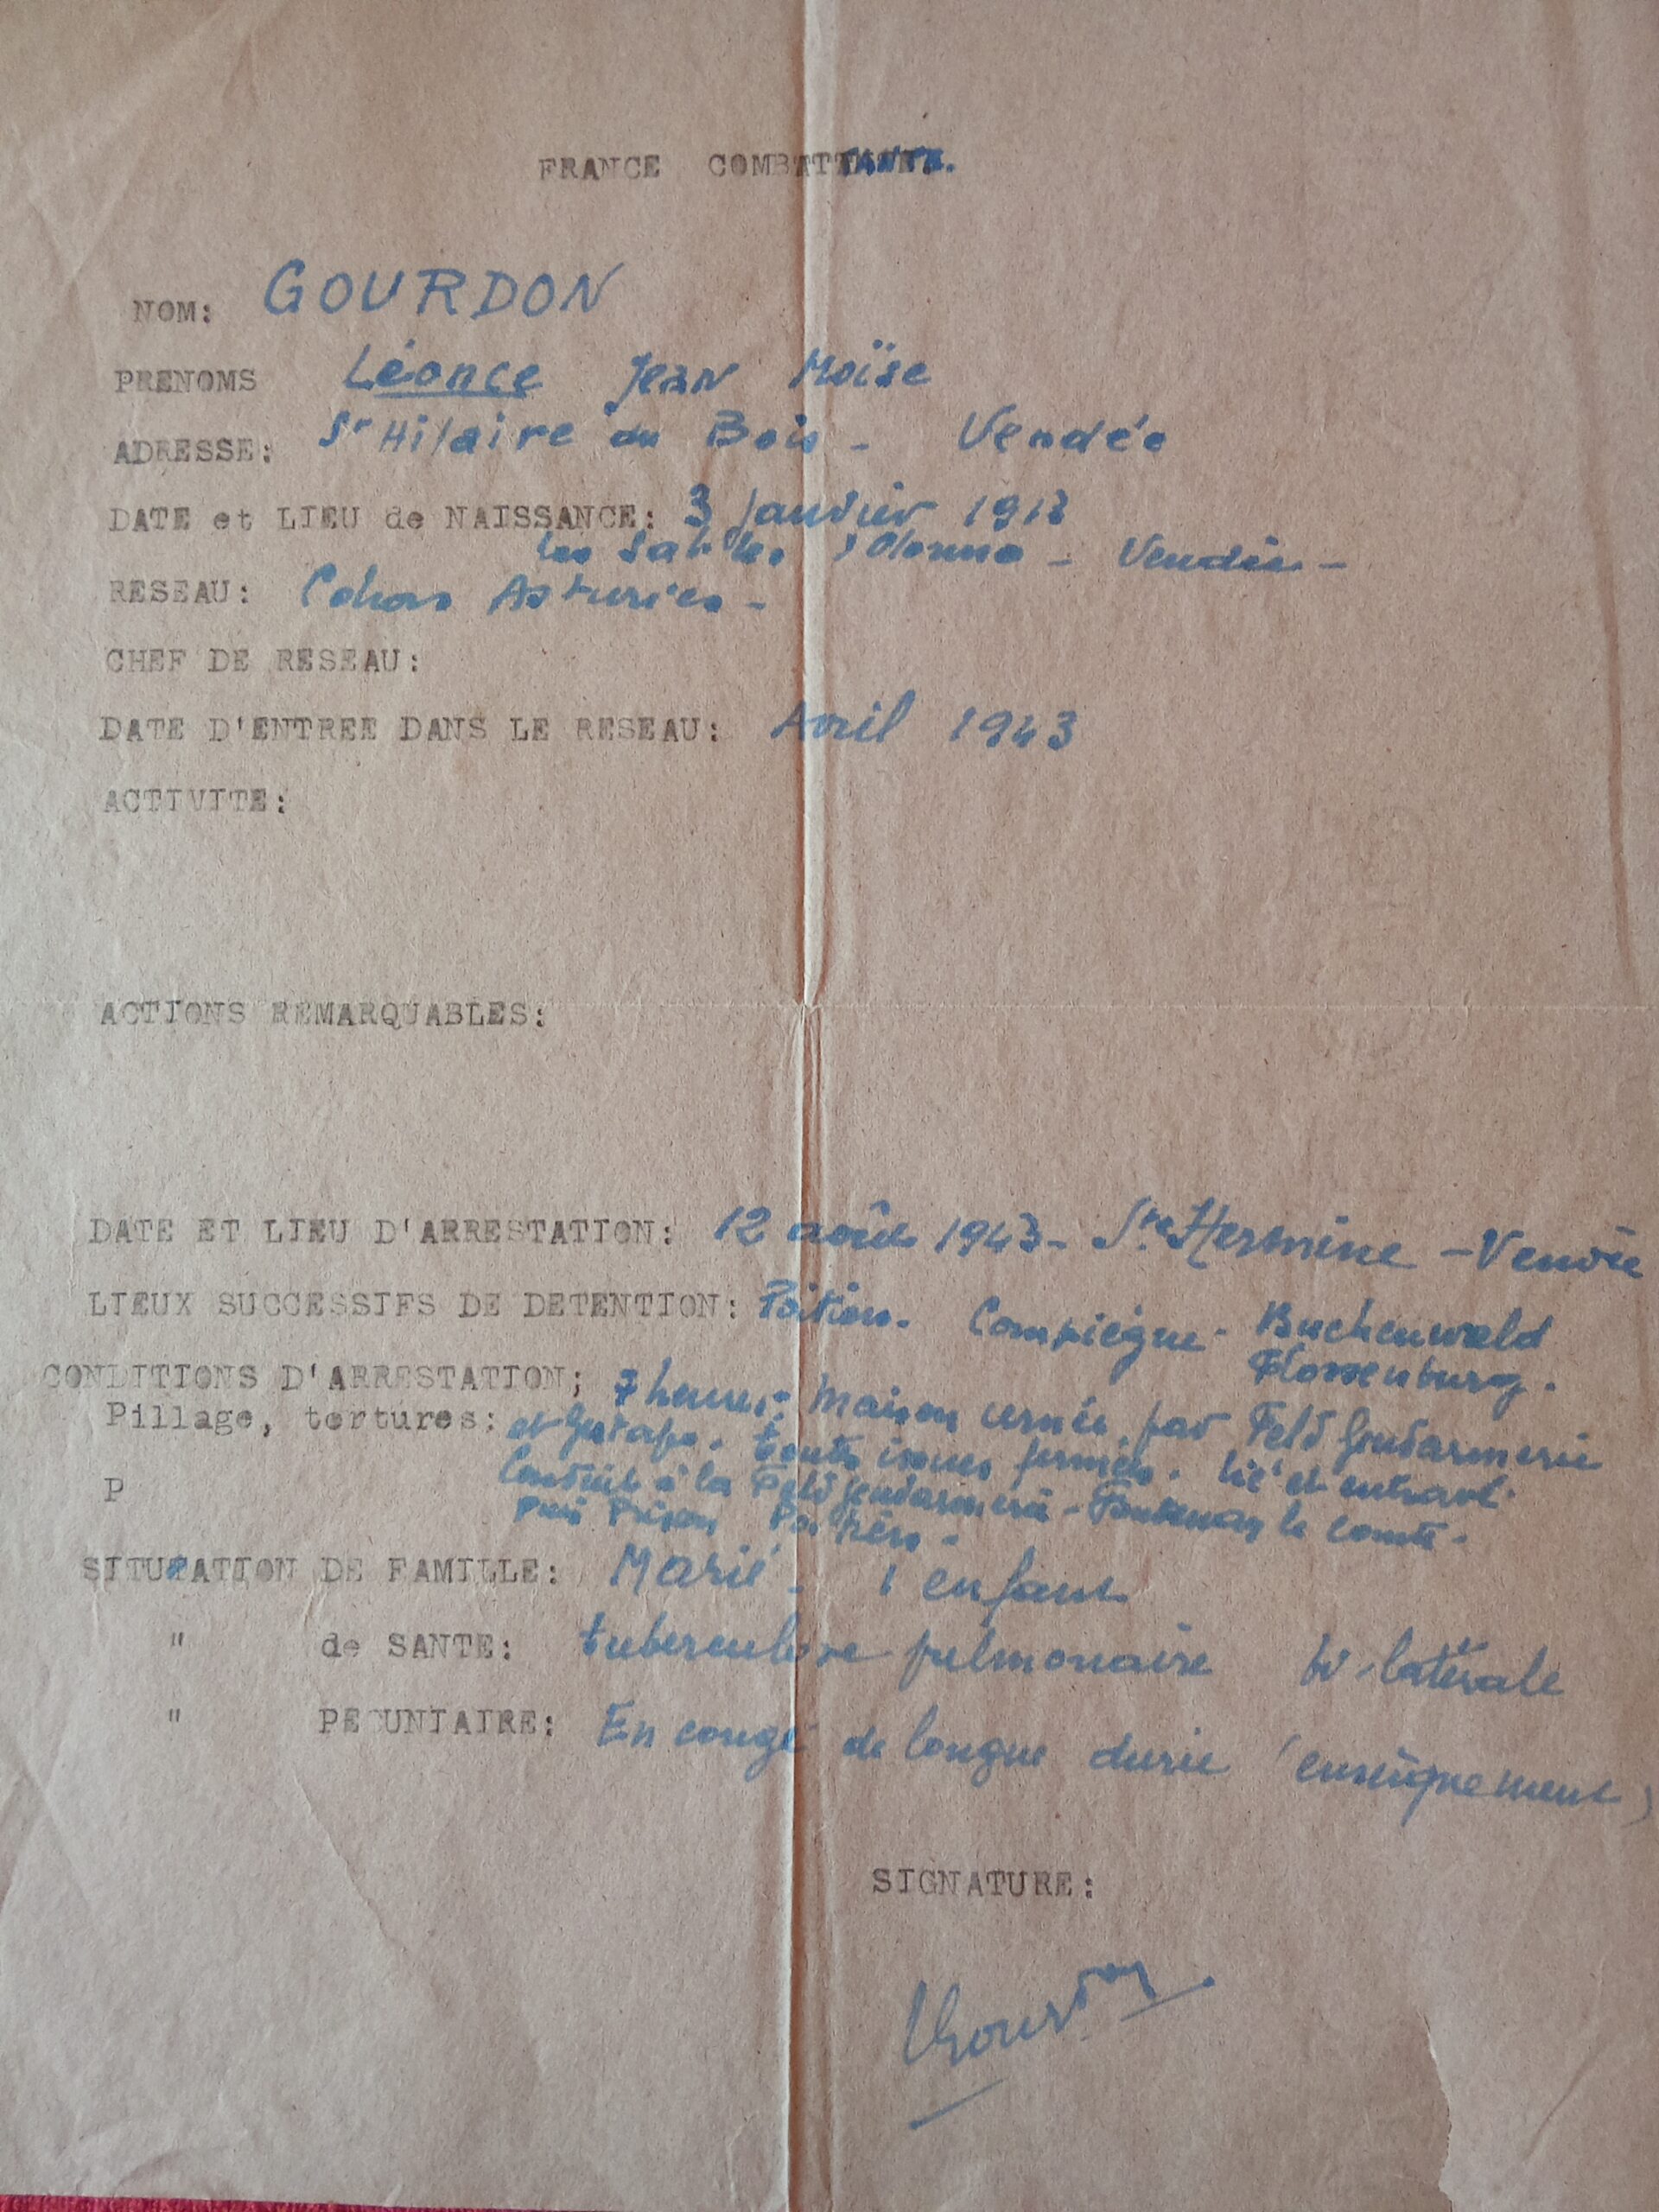 FRANCE COMBATTANTE.
NOM: GOURDON
PRENOMS Léonce Jean Moïse
ADRESSE: St Hilaire du Bois - Vendée
DATE et LIEU de NAISSANCE: 3 janvier 1913
les Sables d'Olonne - Vendée -
RESEAU: Cohors Asturies -
CHEF DE RESEAU:
DATE D'ENTREE DANS LE RESEAU: Avril 1943
ACTIVITE:
ACTIONS REMARQUABLES:
DATE ET LIEU D'ARRESTATION: 12 août 1943 - Ste Hermine - Vendée
LIEUX SUCCESSIFS DE DETENTION: Poitiers. Compiègne - Buchenwald
Flossenburg.
CONDITIONS D'ARRESTATION; 7 heures: Maison cernée par Feld gendarmerie
Pillage, tortures: et Gestapo. toutes issues fermées. lié et entravé.
P Conduit à la Feldgendarmerie - Fontenay le comte -
puis Prison Poitiers -
SITURATION DE FAMILLE: Marié - 1 enfant
" de SANTE: tuberculose pulmonaire bi-latérale
" PECUNIAIRE: En congé de longue durée (enseignement)
SIGNATURE:
LGourdon